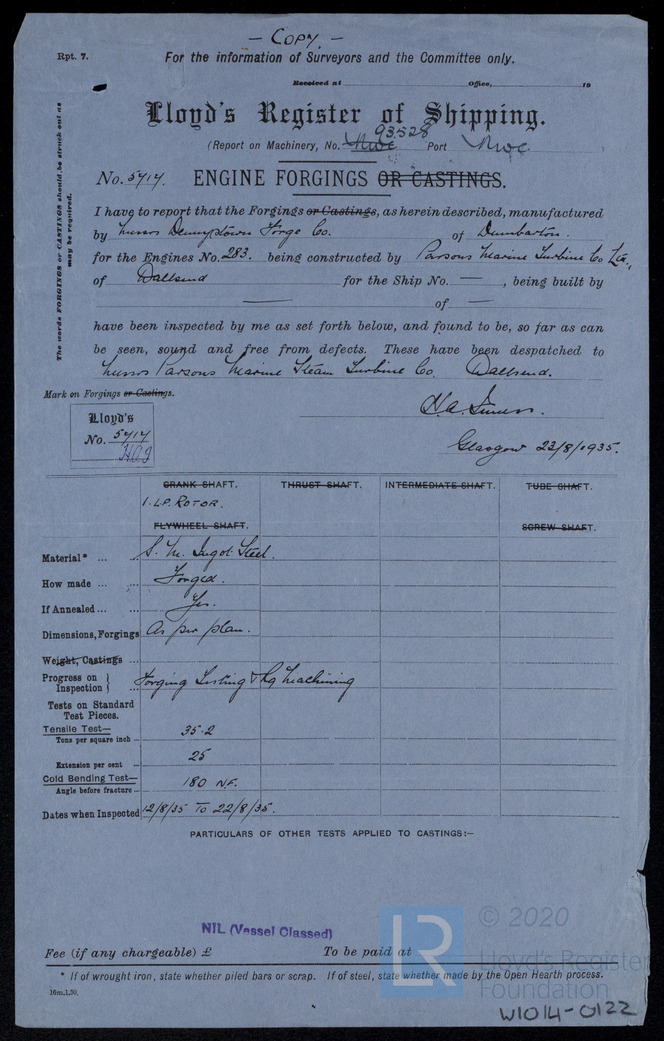 — COPY. —
Rpt. 7.
For the information of Surveyors and the Committee only.
Received at Office, 19
Lloyd's Register of Shipping.
93528
(Report on Machinery, No. Nwc Port Nwc
No. 5414. ENGINE FORGINGS OR CASTINGS.
The words FORGINGS or CASTINGS should be struck out as may be required.
I have to report that the Forgings or Castings, as herein described, manufactured
by Messrs Dennystown Forge Co. of Dumbarton.
for the Engines No. 283. being constructed by Parsons Marine Turbine Co Ltd.,
of Wallsend for the Ship No. — , being built by
— of —
have been inspected by me as set forth below, and found to be, so far as can
be seen, sound and free from defects. These have been despatched to
Messrs Parsons Marine Steam Turbine Co. Wallsend.
Mark on Forgings or Castings.
Lloyd's
No. 5414
Glasgow 23/8/1935.
CRANK SHAFT. THRUST SHAFT. INTERMEDIATE SHAFT. TUBE SHAFT.
1. LP. ROTOR.
FLYWHEEL SHAFT. SCREW SHAFT.
Material* ... S. M. Ingot Steel.
How made ... Forged.
If Annealed ... Yes.
Dimensions, Forgings As per plan.
Weight, Castings ...
Progress on Inspection } Forging Testing & Rg Machining
Tests on Standard
Test Pieces.
Tensile Test—
Tons per square inch 35.2
Extension per cent 25
Cold Bending Test—
Angle before fracture 180 N.F.
Dates when Inspected 12/8/35 To 22/8/35.
PARTICULARS OF OTHER TESTS APPLIED TO CASTINGS:—
NIL (Vessel Classed)
Fee (if any chargeable) £ To be paid at
* If of wrought iron, state whether piled bars or scrap. If of steel, state whether made by the Open Hearth process.
16m,1,30.
LR
© 2020
Lloyd's Register
Foundation
W1014-0122